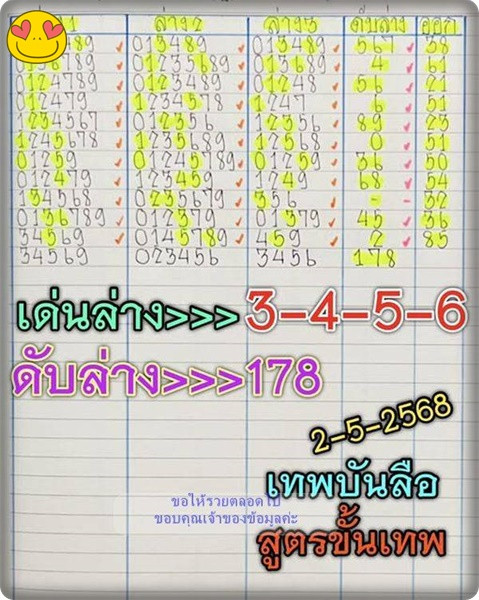 1 ล่าง2 ล่าง3 ดับล่าง ออก
89 013489 013489 567 38
8789 01235689 013689 4 61
0124789 0123489 01248 56 21
012479 1234578 1247 51
1234567 012356 12356 89 23
1245678 1235689 12568 0 51
01259 01245789 01259 36 50
012479 123459 1249 68 54
134568 01235679 356 - - 32
0136789 012379 01379 45 36
34569 0145789 459 2 85
34569 023456 3456 178
เด่นล่าง>>> 3-4-5-6
ดับล่าง>>>178
2-5-2568
เทพบันลือ
ขอให้รวยตลอดไป
ขอบคุณเจ้าของข้อมูลค่ะ
สูตรขั้นเทพ